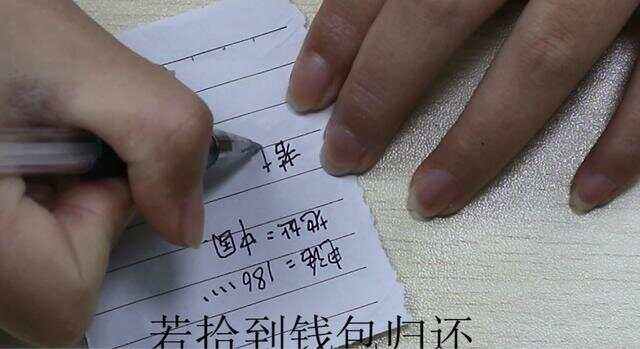 电话=186.....
地址=中国
若
若拾到钱包归还